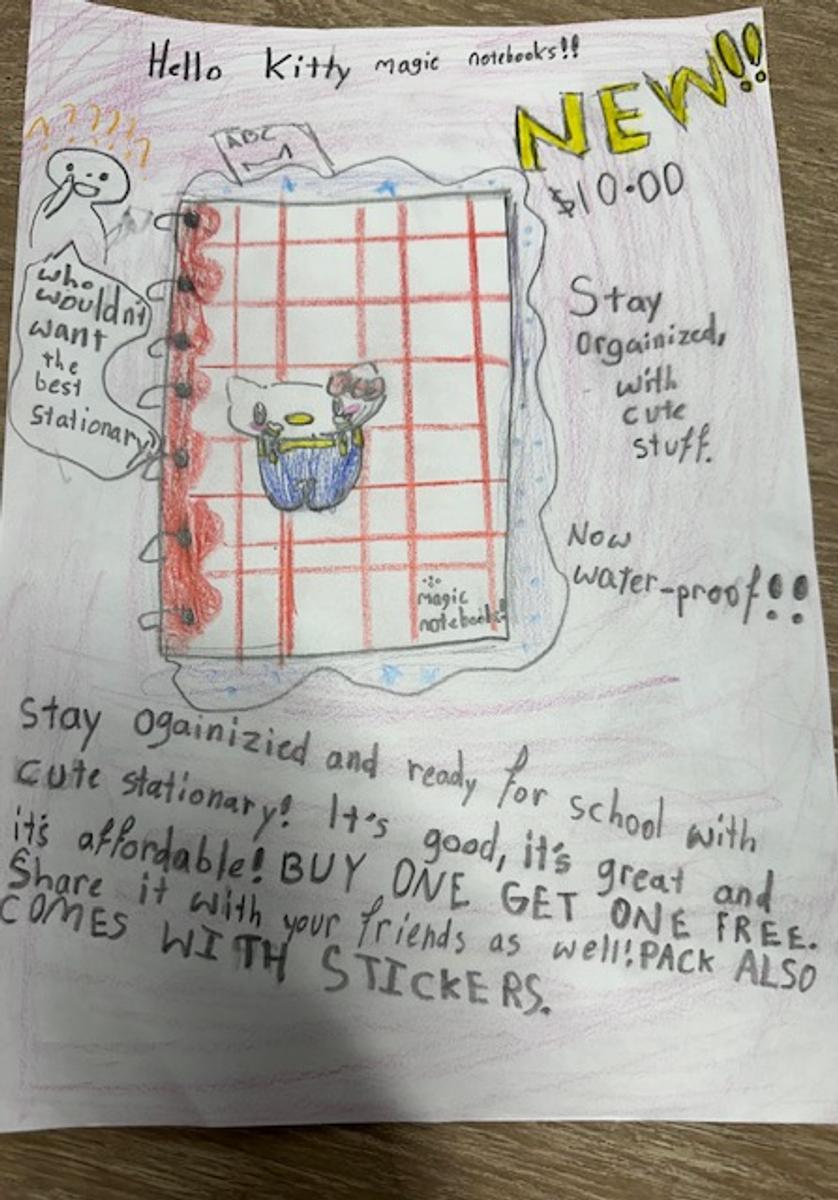 Hello Kitty magic notebooks!!
NEW!!
$10.00
???????
ABC
who
wouldn't
want
the
best
stationary
Stay
orgainized,
with
cute
stuff.
Now
water-proof!!
magic
notebooks!
Stay ogainizied and ready for school with
cute stationary! It's good, it's great and
it's affordable! BUY ONE GET ONE FREE.
Share it with your friends as well! PACK ALSO
COMES WITH STICKERS.